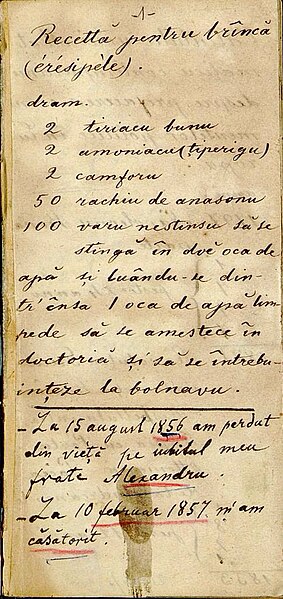 -1-
Recettă pentru brîncă
(érésipéle).
dram.
2 tiriacu bunu
2 amoniacu (țiperigu)
2 camforu
50 rachiu de anasonu
100 varu nestinsu să se
stingă în dvĕ oca de
apă si luându-se din-
tr'ênsa 1 oca de apă lim
pede să se amestece în
doctoriă și să se întrebu-
ințeze la bolnavu.
- La 15 august 1856 am perdut
din viéță pe iubitul meu
frate Alexandru.
- La 10 februar 1857 m'am
căsătorit.